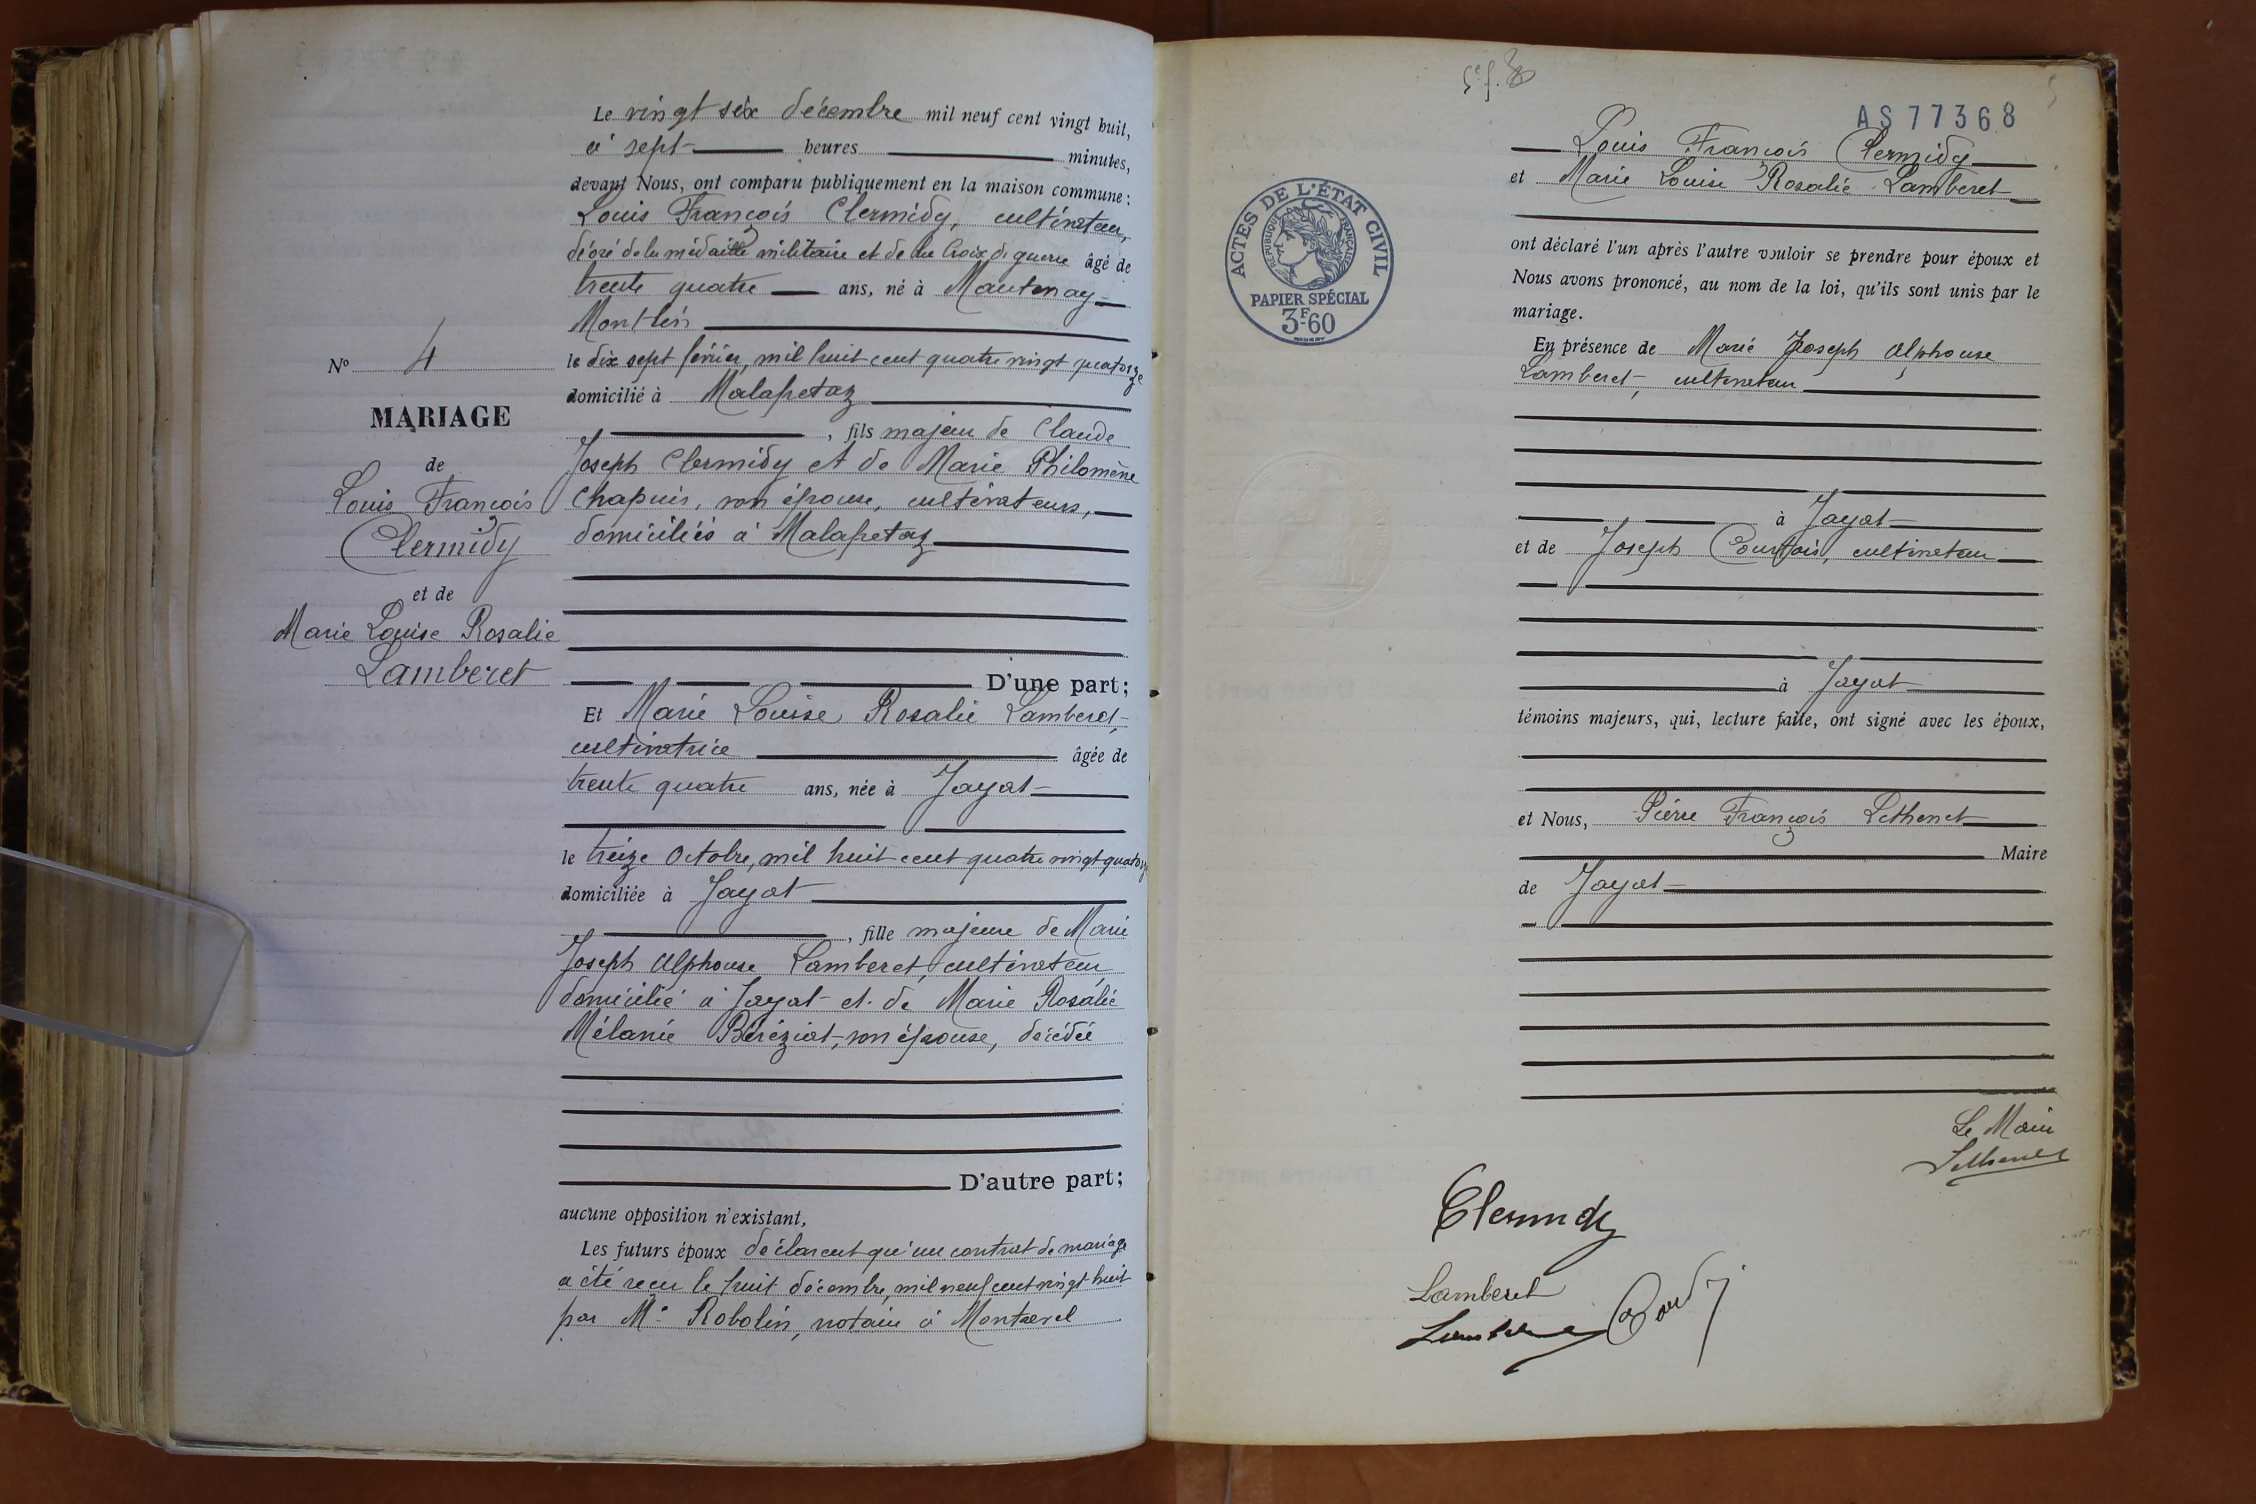 Le vingt six décembre mil neuf cent vingt huit,
à sept heures minutes,
devant Nous, ont comparu publiquement en la maison commune :
Louis François Clermidy, cultivateur,
décoré de la médaille militaire et de la Croix de guerre âgé de
trente quatre ans, né à Mantenay-
Montlin
le dix sept février, mil huit cent quatre vingt quatorze
domicilié à Malapetaz
, fils majeur de Claude
Joseph Clermidy et de Marie Philomène
Chapuis, son épouse, cultivateurs,
domiciliés à Malapetaz
D'une part;
Et Marie Louise Rosalie Lamberet,
cultivatrice âgée de
trente quatre ans, née à Jayat
le treize Octobre, mil huit cent quatre vingt quatorze
domiciliée à Jayat
, fille majeure de Marie
Joseph Alphonse Lamberet, cultivateur,
domicilié à Jayat et de Marie Rosalie
Mélanie Béréziat, son épouse, décédée
D'autre part;
aucune opposition n'existant,
Les futurs époux déclarent qu'un contrat de mariage
a été reçu le huit décembre, mil neuf cent vingt huit
par Me Robolin, notaire à Montrevel
No 4
MARIAGE
de
Louis François
Clermidy
et de
Marie Louise Rosalie
Lamberet
AS77368
Louis François Clermidy
et Marie Louise Rosalie Lamberet
ont déclaré l'un après l'autre vouloir se prendre pour époux et
Nous avons prononcé, au nom de la loi, qu'ils sont unis par le
mariage.
En présence de Marie Joseph Alphonse
Lamberet, cultivateur
à Jayat
et de Joseph Courtois, cultivateur
à Jayat
témoins majeurs, qui, lecture faite, ont signé avec les époux,
et Nous, Pierre François Lethenet
Maire
de Jayat
Le Maire
Lethenet
Clermidy
Lamberet
Lamberet
ACTES DE L'ÉTAT CIVIL
RÉPUBLIQUE FRANÇAISE
PAPIER SPÉCIAL
3F60